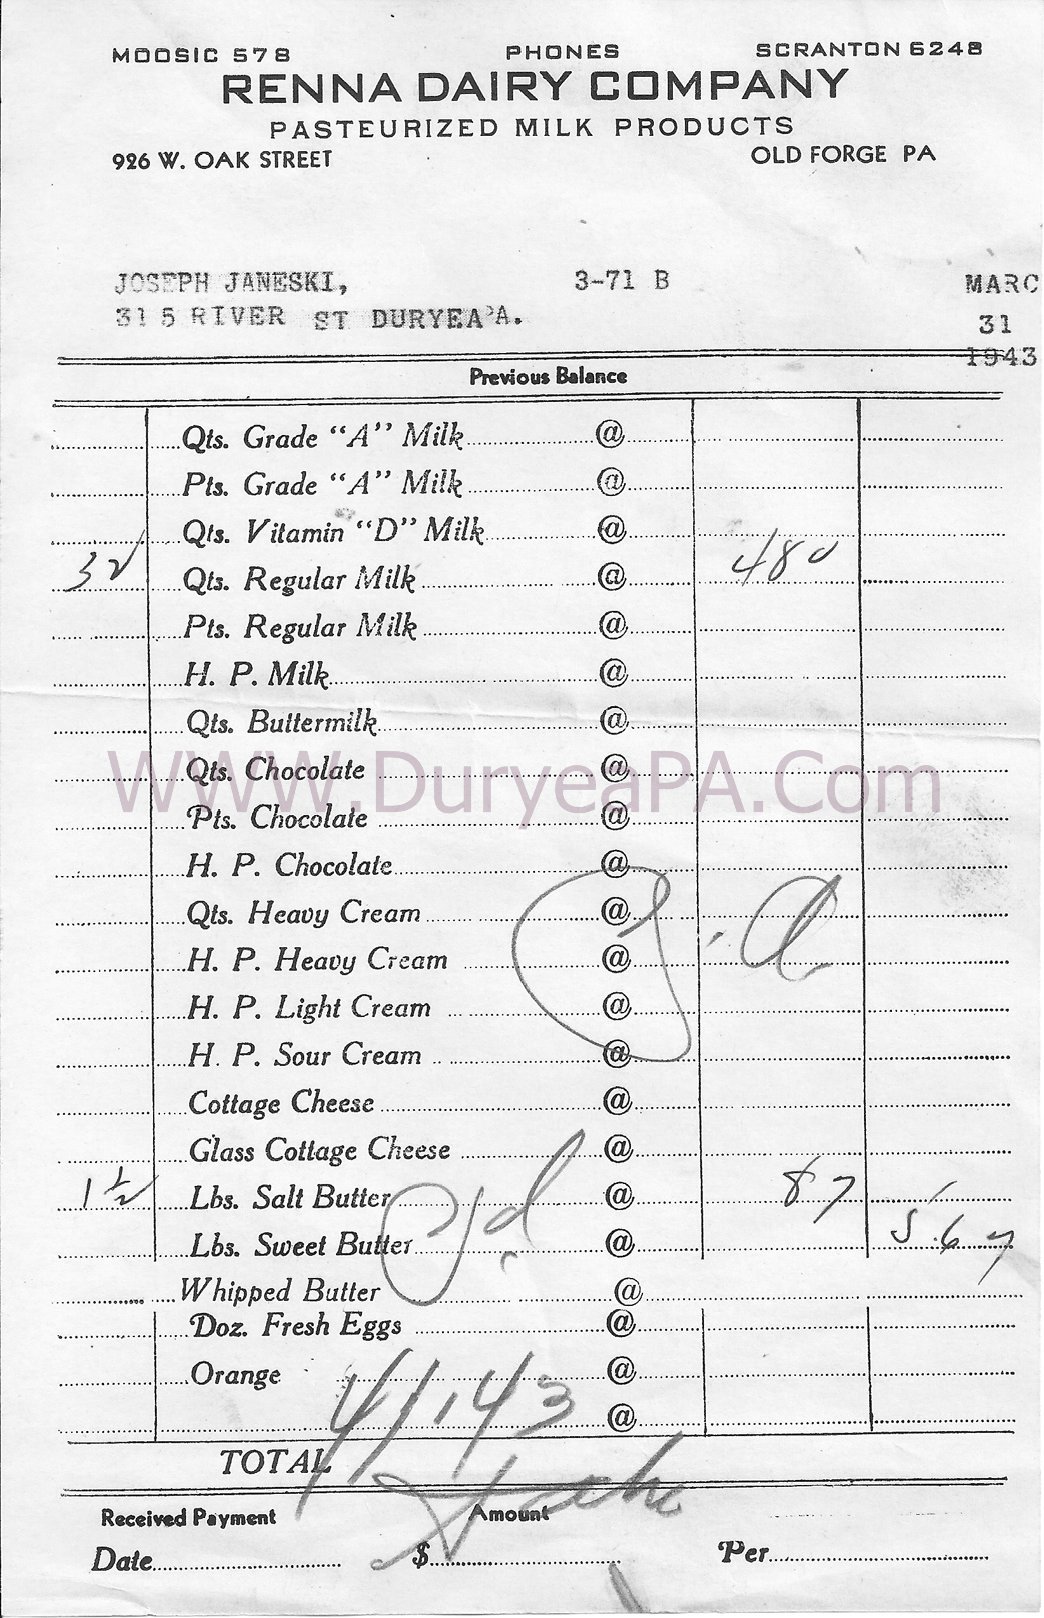 MOOSIC 578 PHONES SCRANTON 6248
RENNA DAIRY COMPANY
PASTEURIZED MILK PRODUCTS
926 W. OAK STREET OLD FORGE PA
JOSEPH JANESKI, 3-71 B MARC
315 RIVER ST DURYEA PA. 31
1943
Previous Balance
Qts. Grade "A" Milk @
Pts. Grade "A" Milk @
Qts. Vitamin "D" Milk @
32 Qts. Regular Milk @ 480
Pts. Regular Milk @
H. P. Milk @
Qts. Buttermilk @
Qts. Chocolate @
WWW.DuryeaPA.Com
Pts. Chocolate @
H. P. Chocolate @
Qts. Heavy Cream @
H. P. Heavy Cream @
H. P. Light Cream @
H. P. Sour Cream @
Cottage Cheese @
Glass Cottage Cheese @
1 1/2 Lbs. Salt Butter @ 87
Lbs. Sweet Butter @ 5.67
Pd
Whipped Butter @
Doz. Fresh Eggs @
Orange @
4/1/43
@
TOTAL
Received Payment Amount
Date $ Per